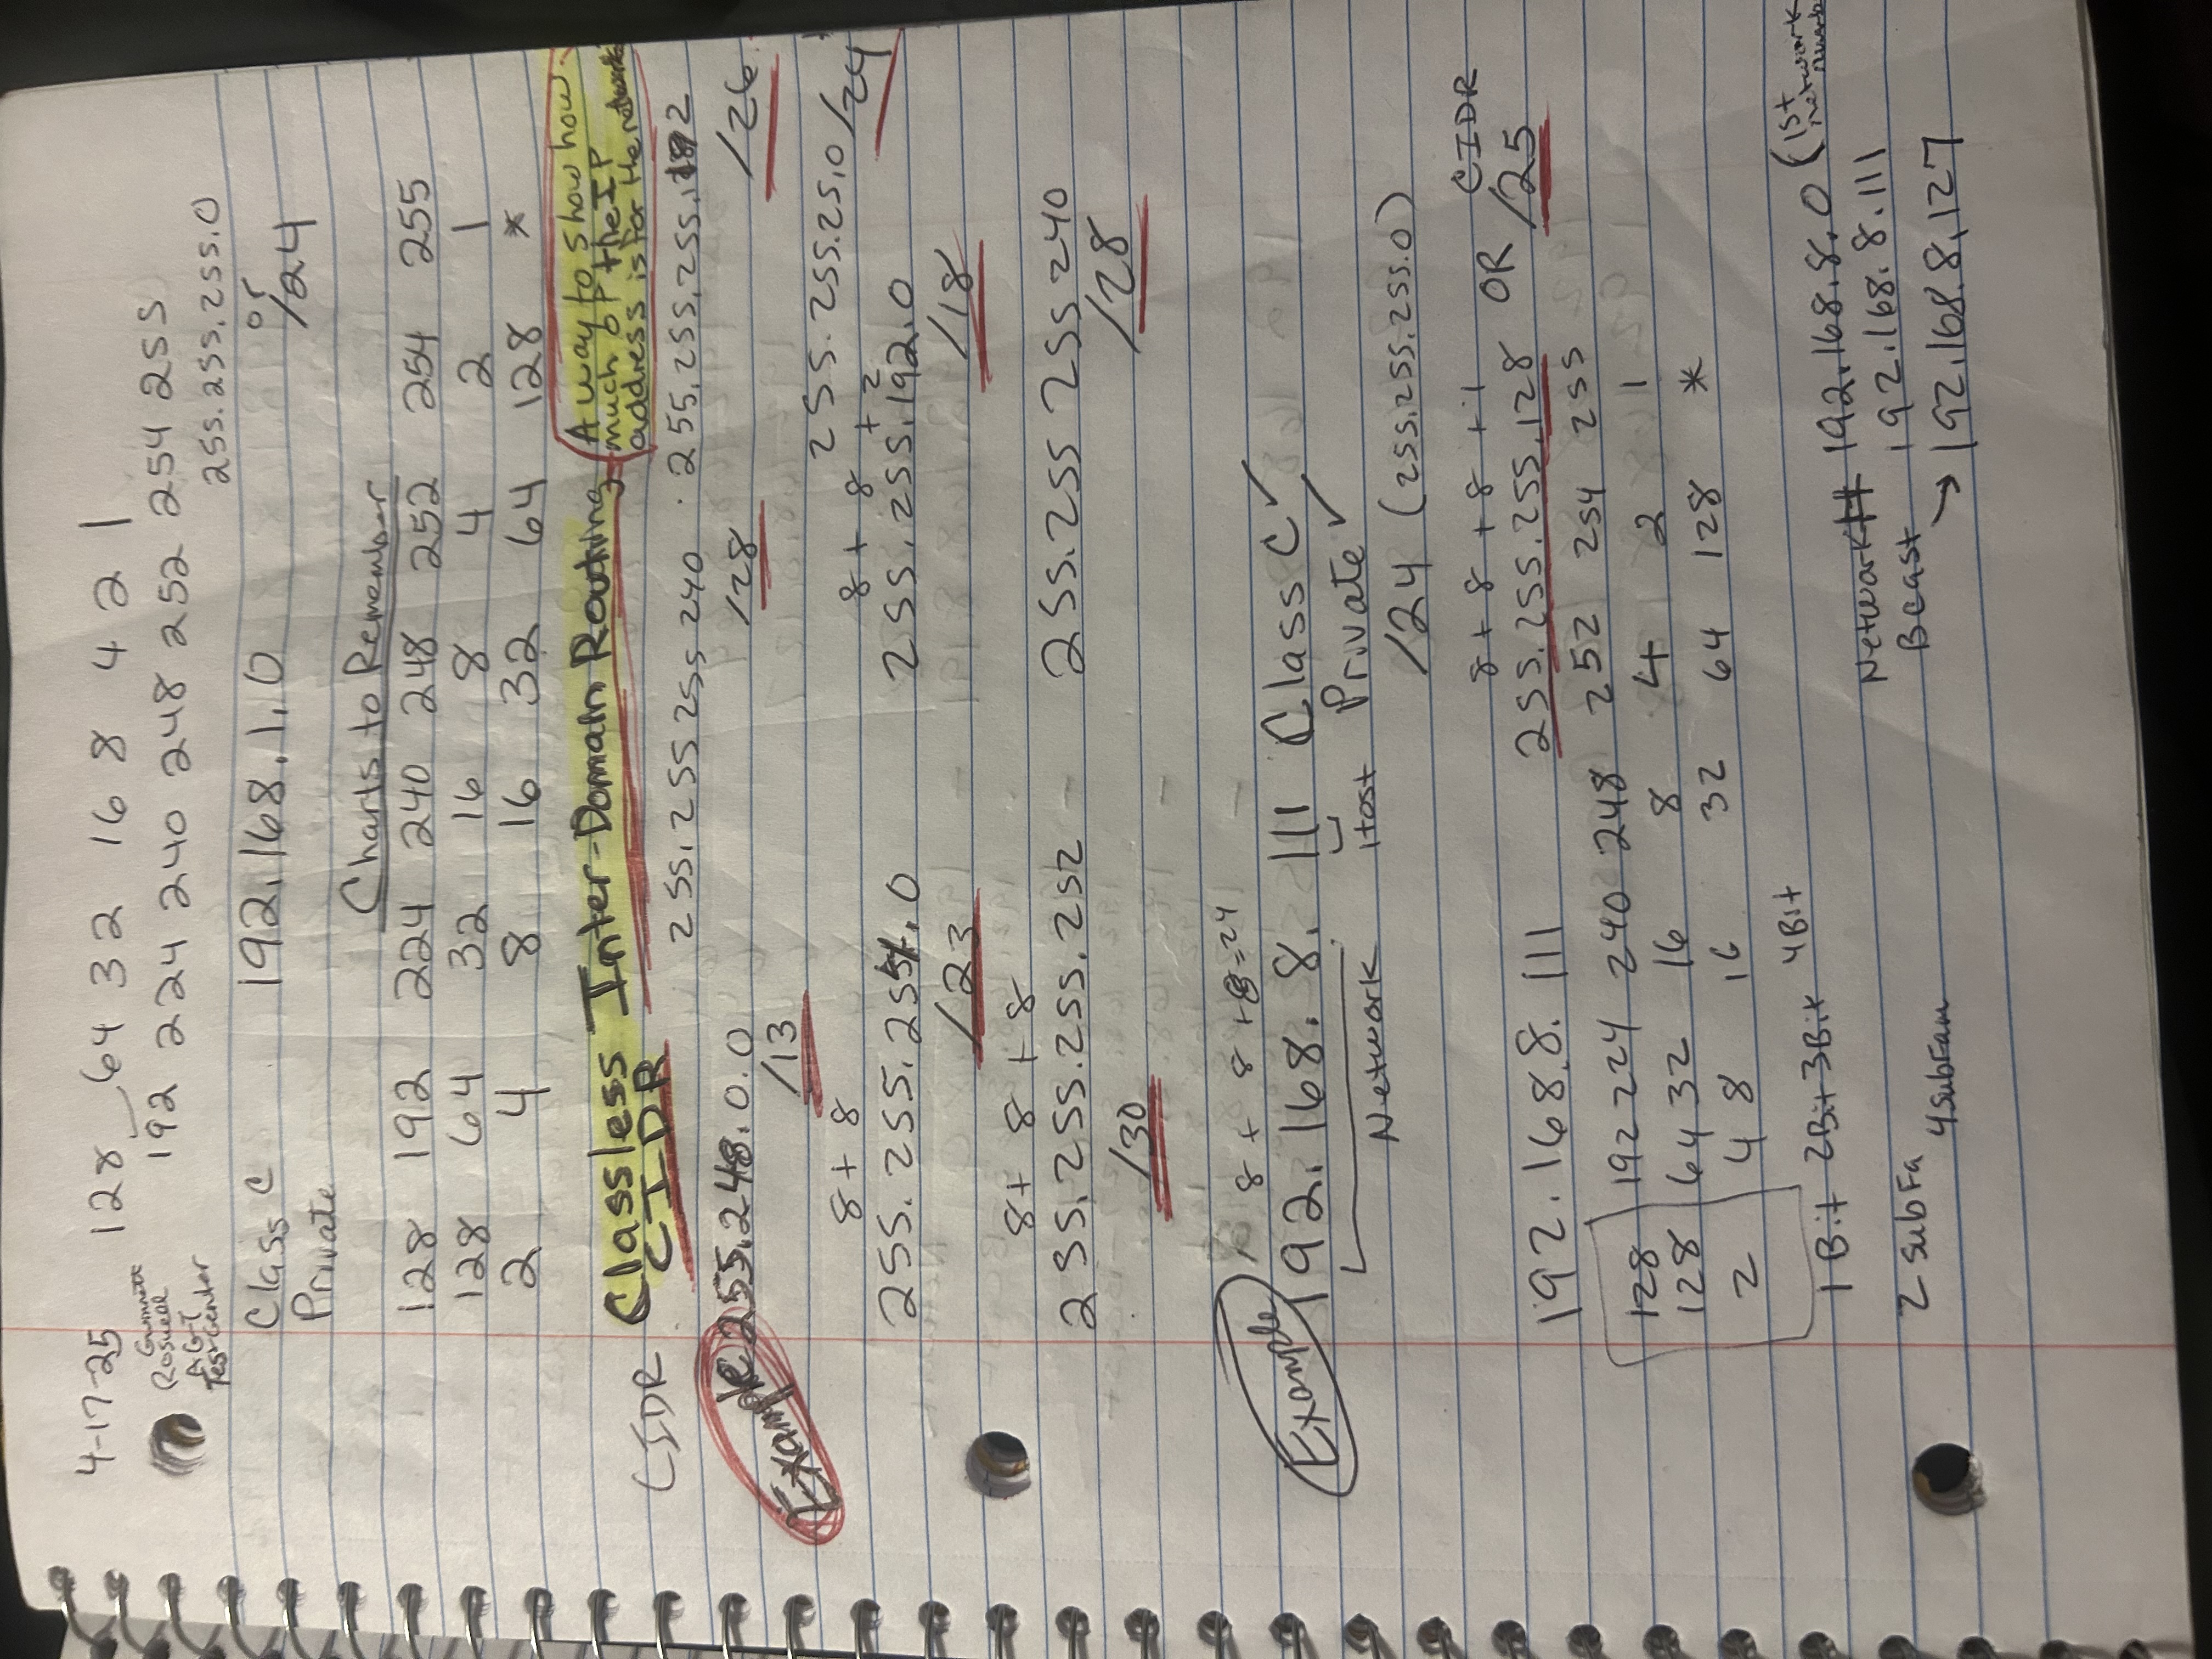 4-17-25 128 64 32 16 8 4 2 1
Gwinnett
Roswell
AGT
Test Center
192 224 240 248 252 254 255
255.255.255.0
or
/24
Class C 192.168.1.0
Private
Charts to Remember
128 192 224 240 248 252 254 255
128 64 32 16 8 4 2 1
2 4 8 16 32 64 128 *
CIDR Classless Inter-Domain Routing
CIDR
A way to show how
much of the IP
address is for the network
255.255 255 240 255.255.255.192
/28 /26
Example 255.248.0.0
/13
255.255.25.0 /24
8+ 8 8 + 8 +2
255.255.254.0 255.255.192.0
/23 /18
8+ 8 +8
255.255.255.252 255.255 255 240
/30 /28
8 + 8 +8=24
Example 192.168.8.111 Class C ✓
Network Host Private ✓
/24 (255.255.255.0)
8 + 8 + 8 +1 CIDR
192.168.8.111 255.255.255.128 OR /25
128 192 224 240 248 252 254 255
128 64 32 16 8 4 2 1
2 4 8 16 32 64 128 *
1 Bit 2Bit 3Bit 4Bit
2 SubFa
4SubFam
Network# 192.168.8.0 (1st
network
Bcast 192.168.8.111
→ 192.168.8.127